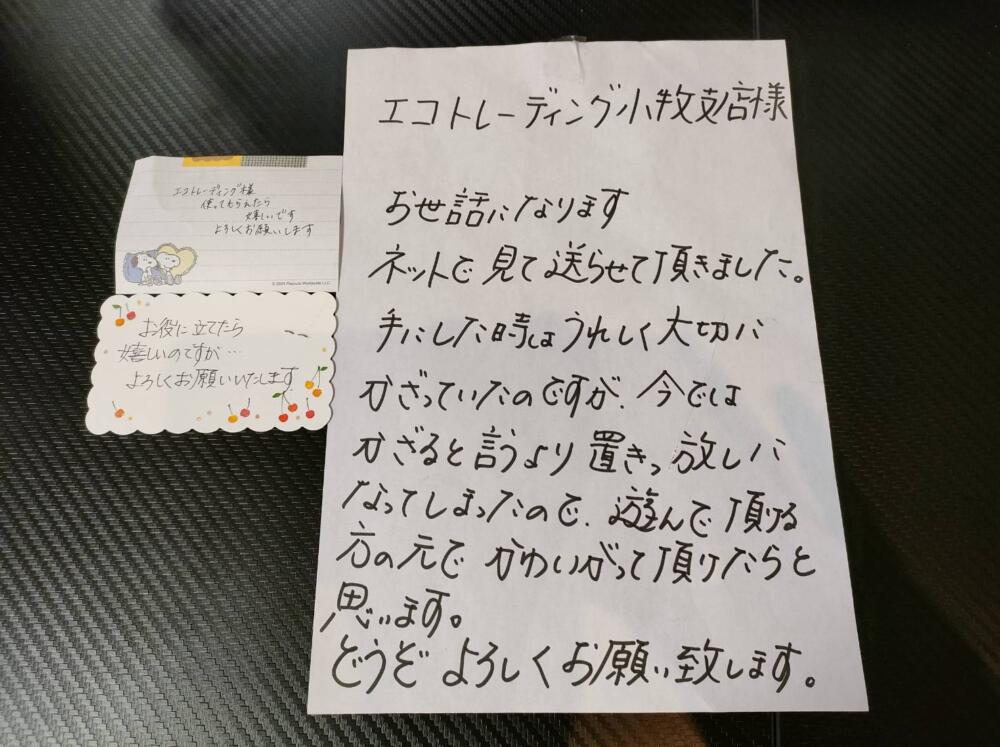 エコトレーディング様
使ってもらえたら
嬉しいです
よろしくお願いします
© 2024 Peanuts Worldwide LLC
お役に立てたら
嬉しいのですが…
よろしくお願いいたします
エコトレーディング小牧支店様
お世話になります
ネットで見て送らせて頂きました。
手にした時はうれしく大切に
かざっていたのですが、今では
かざると言うより置きっ放しに
なってしまったので、遊んで頂ける
方の元でかわいがって頂けたらと
思います。
どうぞよろしくお願い致します。